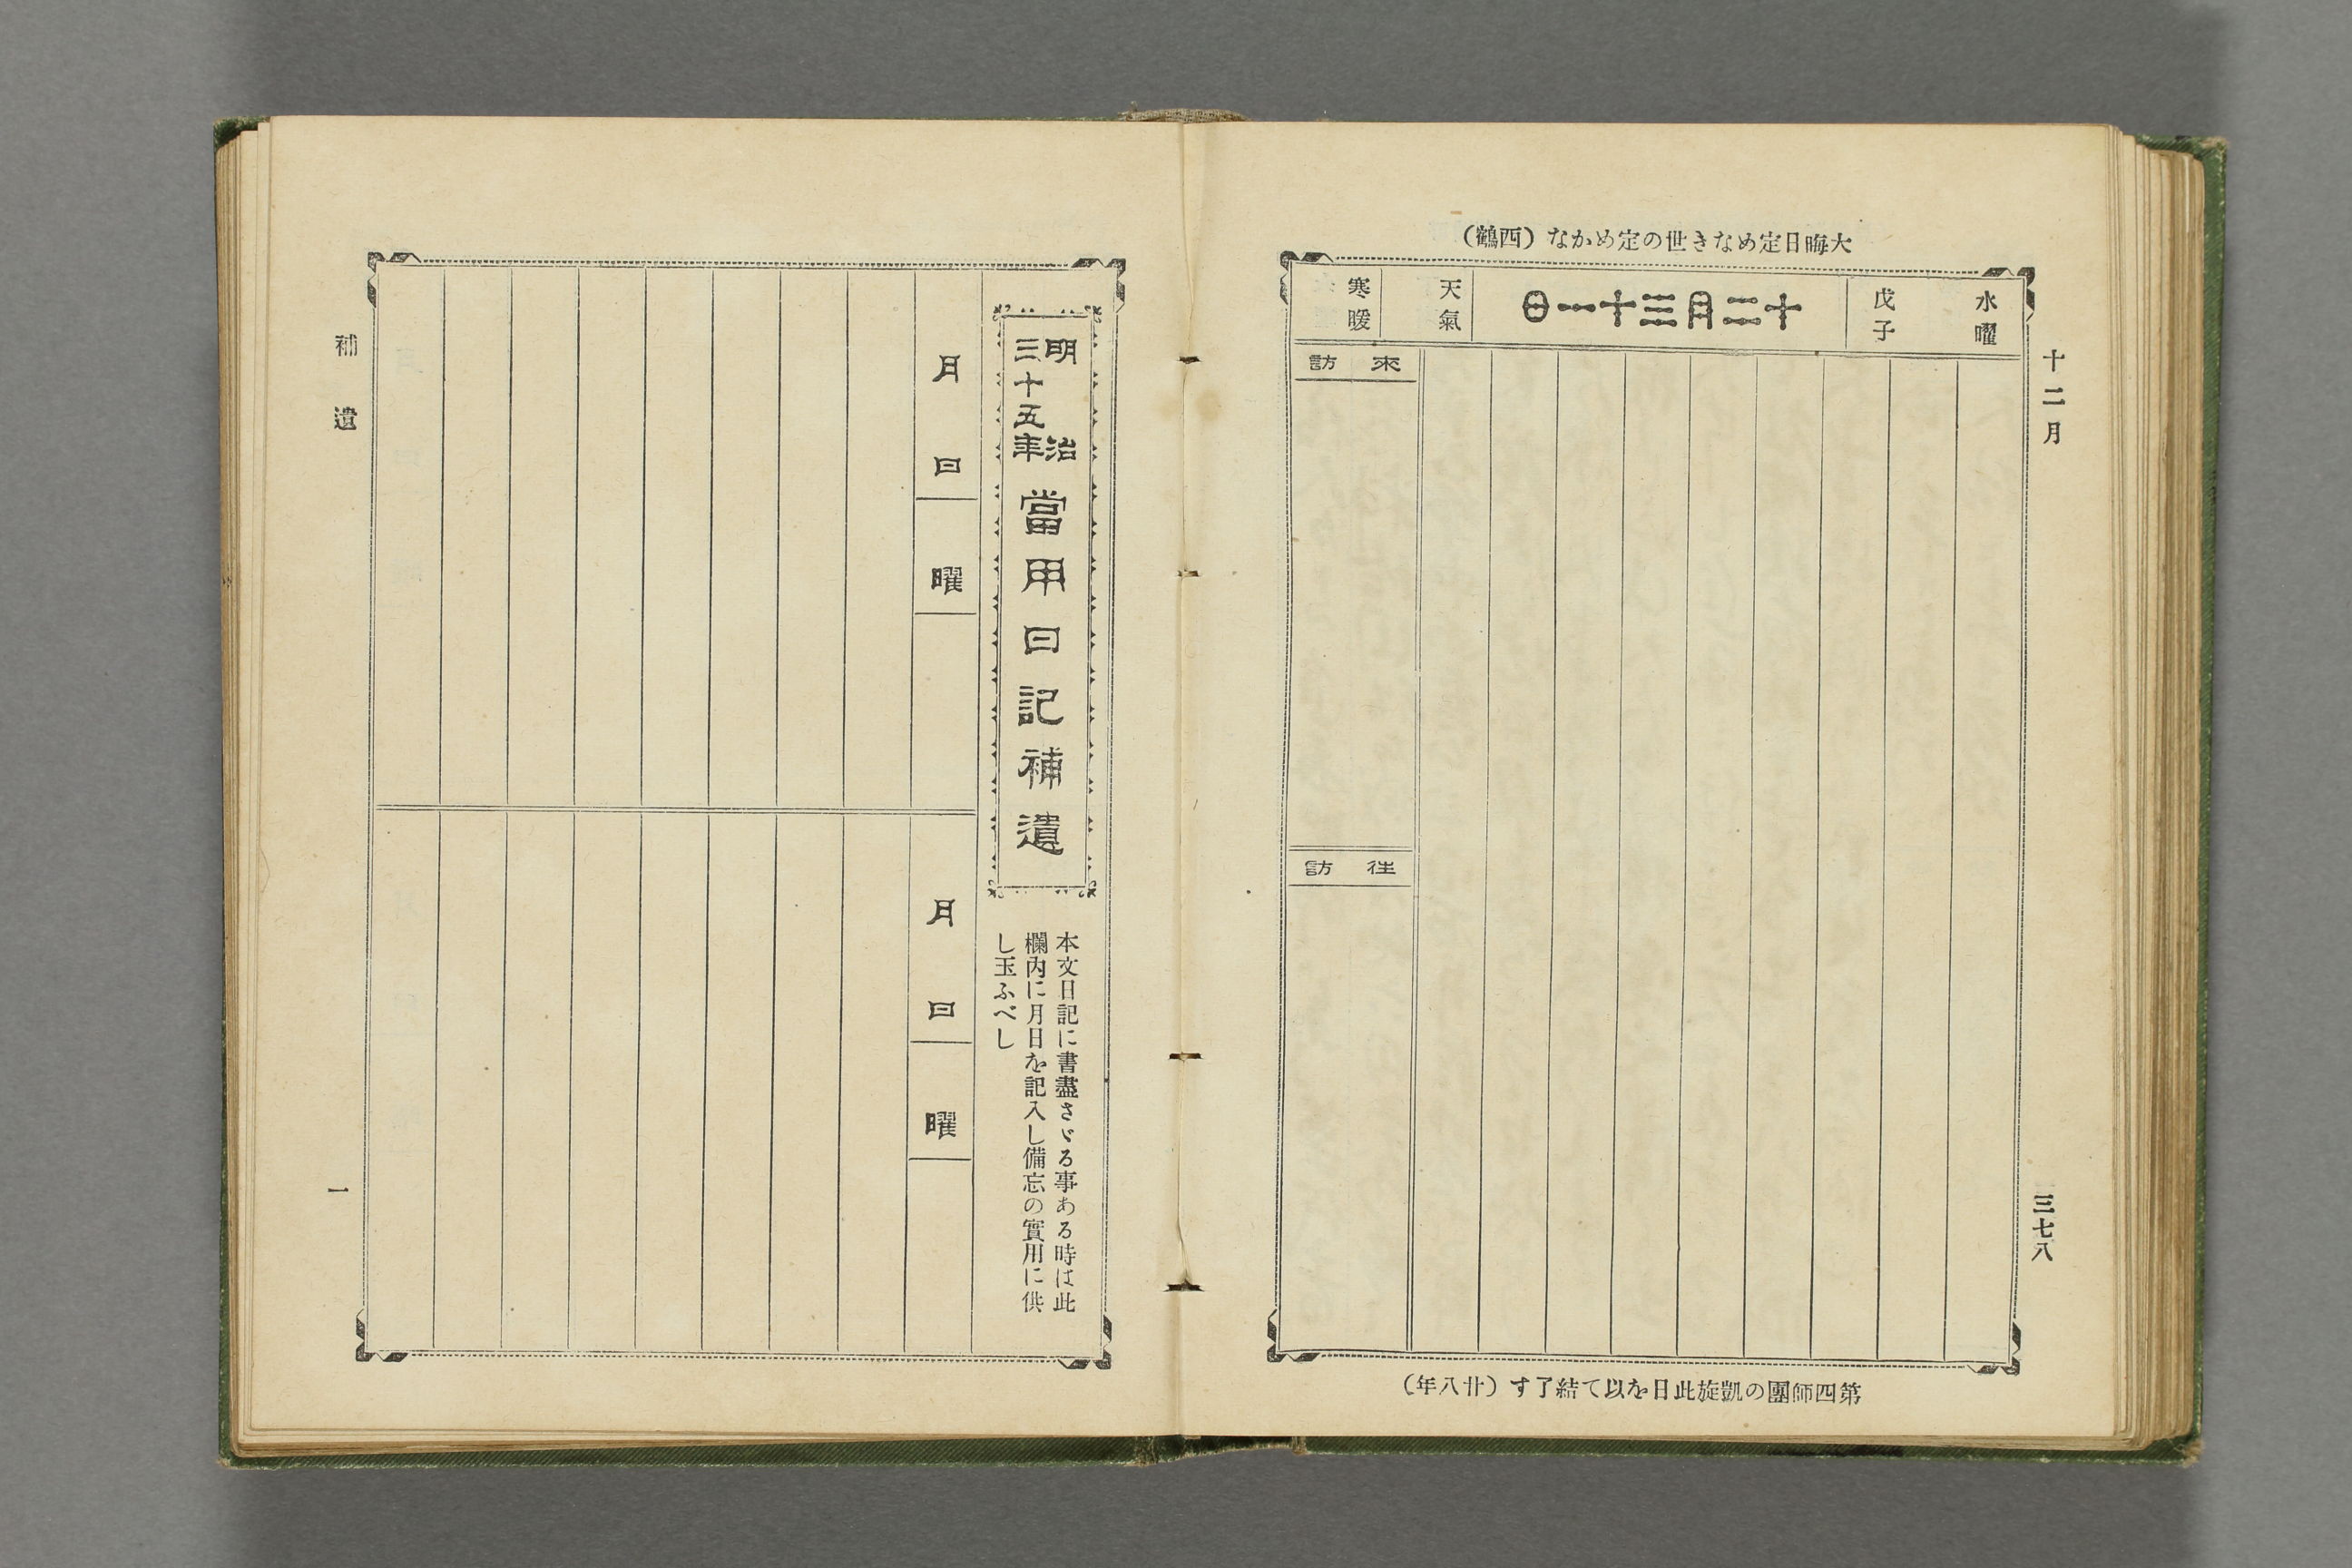 十二月
三七八
大晦日定めなき世の定めかな（西鶴）
水曜
戊子
十二月三十一日
天氣
寒暖
來訪
往訪
第四師團の凱旋此日を以て結了す（廿八年）
明治三十五年當用日記補遺
本文日記に書盡さゞる事ある時は此
欄内に月日を記入し備忘の實用に供
し玉ふべし
月日
曜
月日
曜
補遺
一